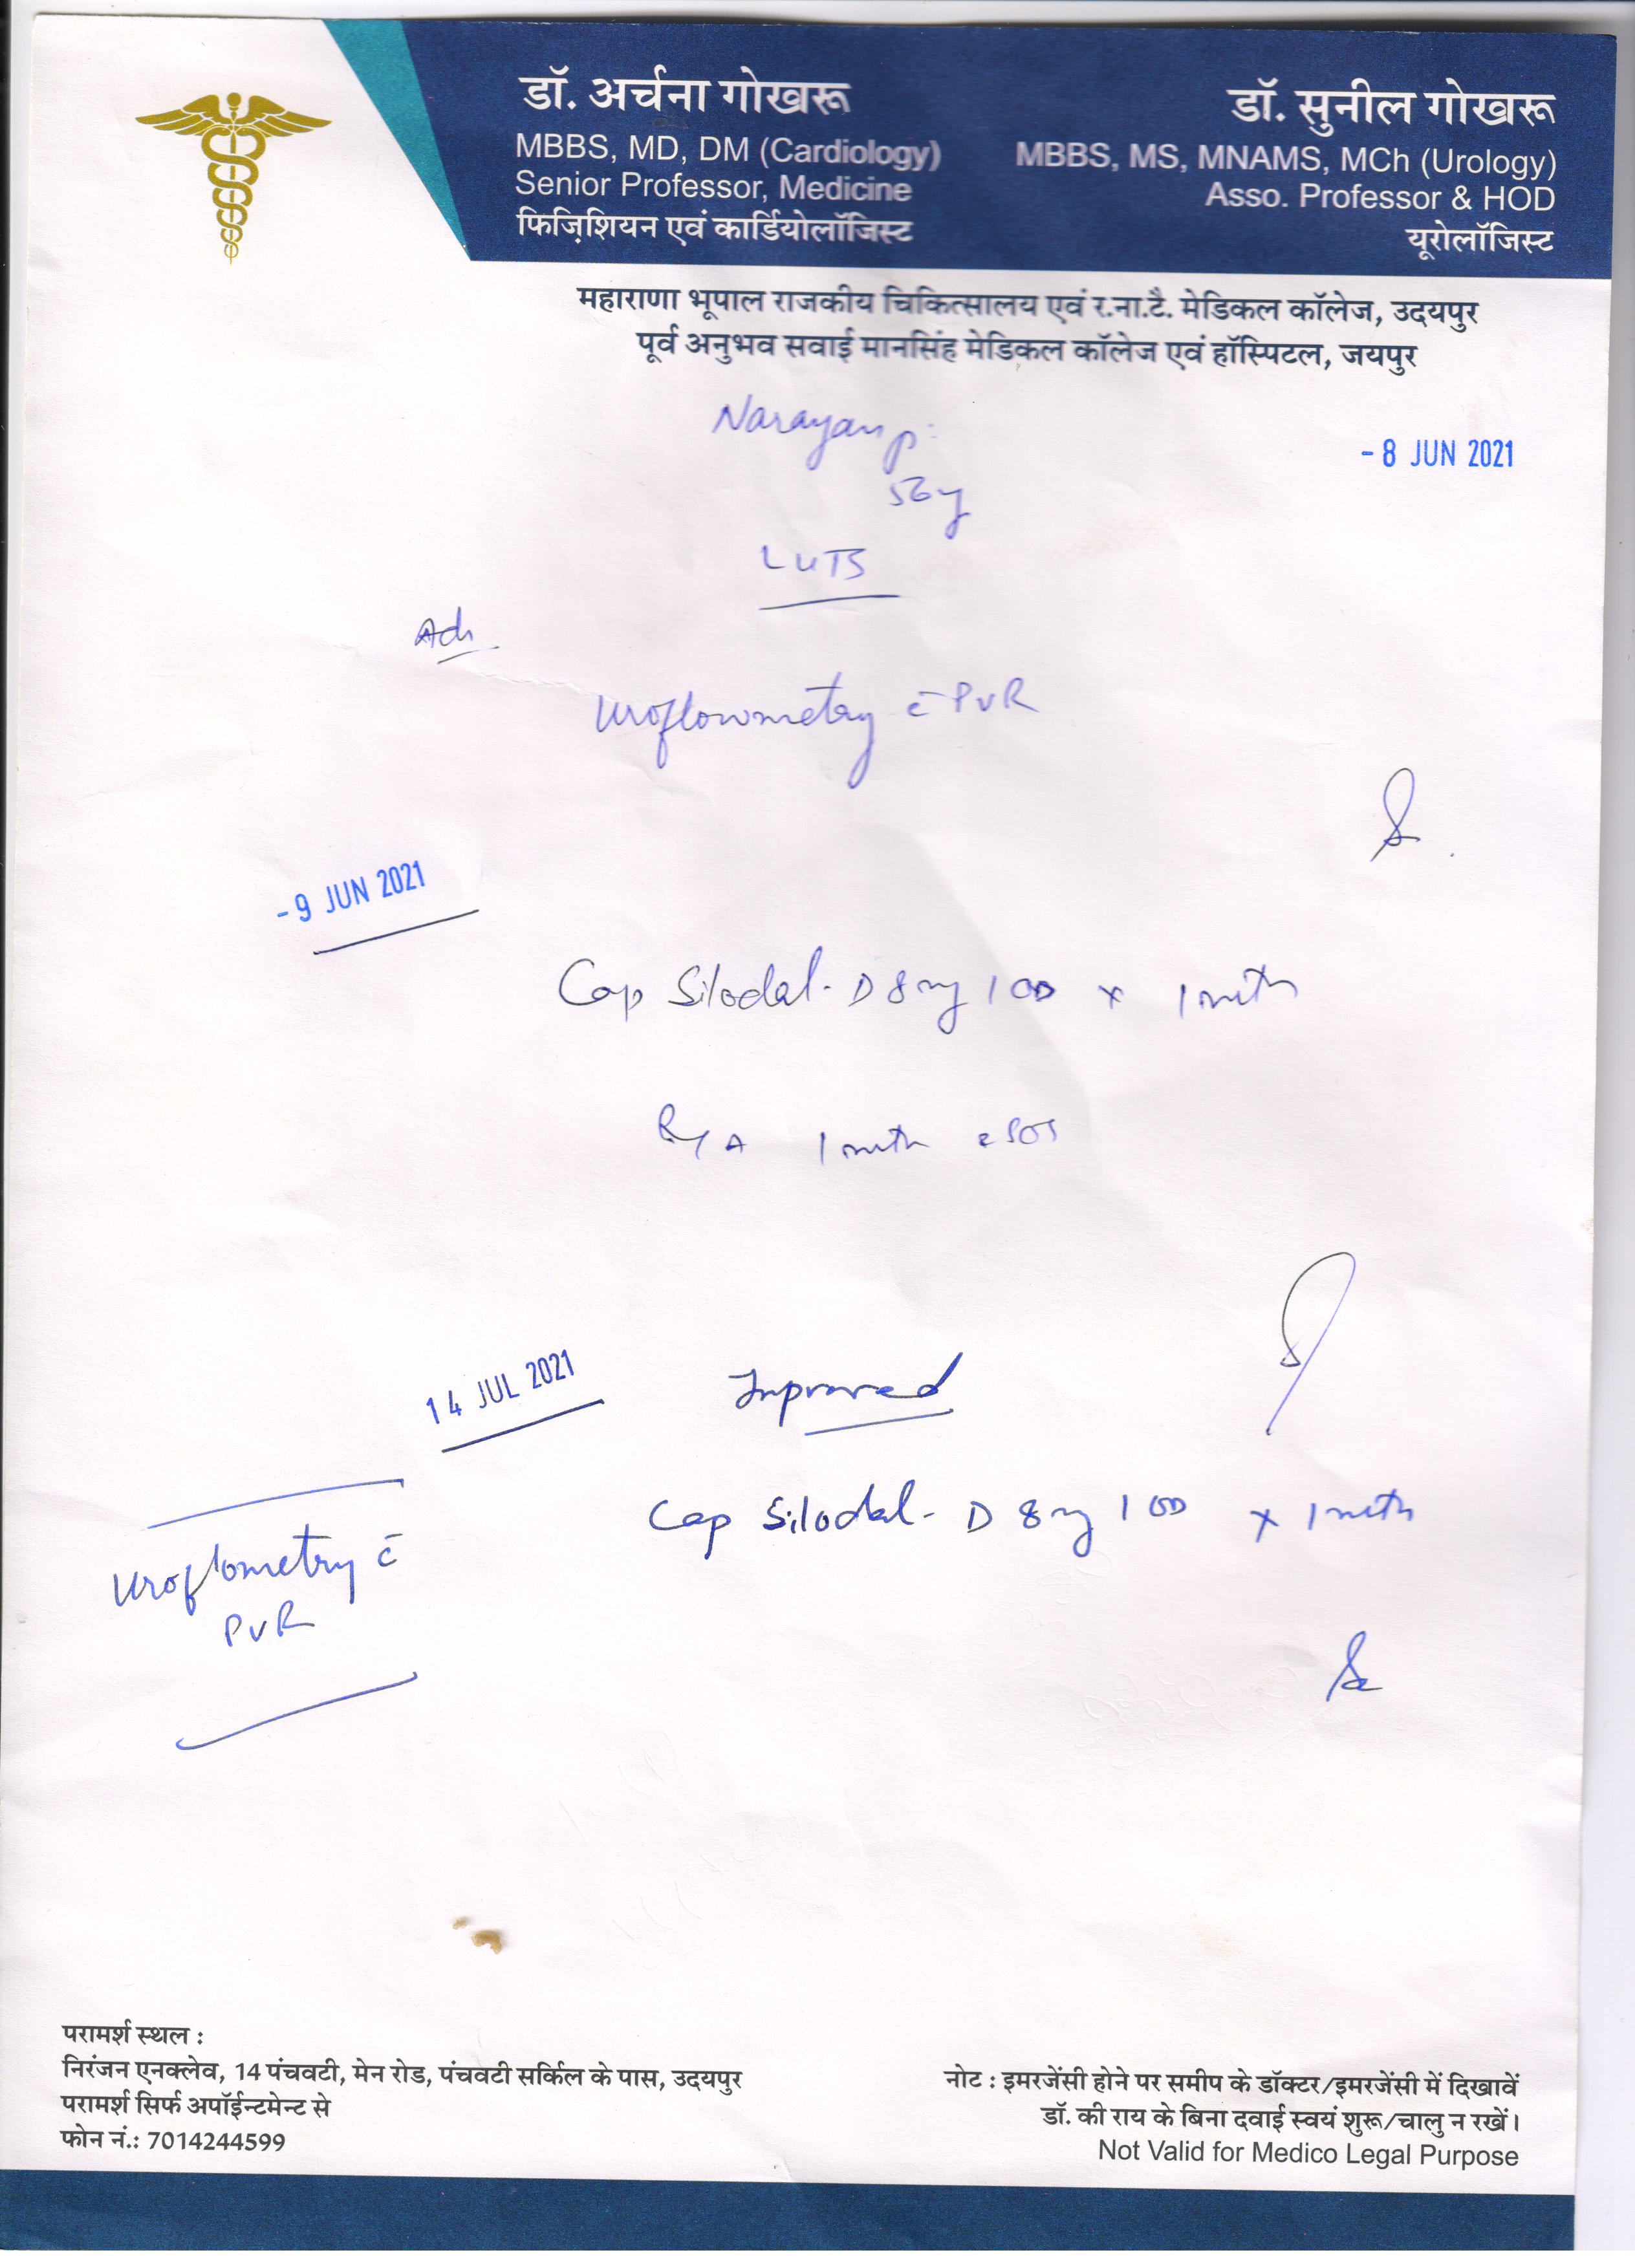 डॉ. अर्चना गोखरू
MBBS, MD, DM (Cardiology)
Senior Professor, Medicine
फिज़िशियन एवं कार्डियोलॉजिस्ट
डॉ. सुनील गोखरू
MBBS, MS, MNAMS, MCh (Urology)
Asso. Professor & HOD
यूरोलॉजिस्ट
महाराणा भूपाल राजकीय चिकित्सालय एवं र.ना.टै. मेडिकल कॉलेज, उदयपुर
पूर्व अनुभव सवाई मानसिंह मेडिकल कॉलेज एवं हॉस्पिटल, जयपुर
Narayan
- 8 JUN 2021
56y
LUTS
Uroflowmetry c̄ PVR
- 9 JUN 2021
Cap Silodal-D 8mg 1 OD x 1 mth
R/A 1 mth c SOS
14 JUL 2021
Improved
Cap Silodal-D 8mg 1 OD x 1 mth
Uroflometry c̄
PVR
परामर्श स्थल :
निरंजन एनक्लेव, 14 पंचवटी, मेन रोड, पंचवटी सर्किल के पास, उदयपुर
परामर्श सिर्फ अपॉईन्टमेन्ट से
फोन नं.: 7014244599
नोट : इमरजेंसी होने पर समीप के डॉक्टर/इमरजेंसी में दिखावें
डॉ. की राय के बिना दवाई स्वयं शुरू/चालु न रखें।
Not Valid for Medico Legal Purpose